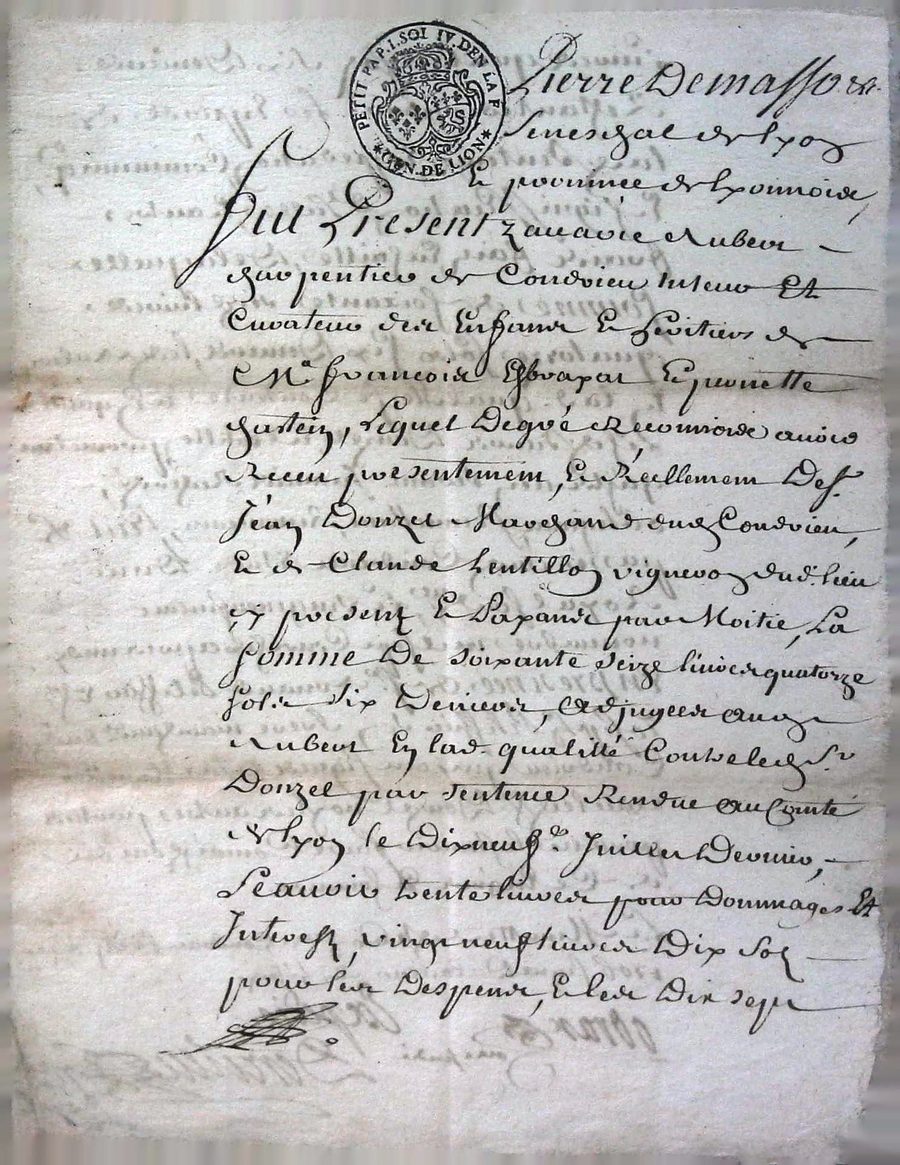 PETIT PAP. I. SOL IV. DEN. LA F.
*GEN. DE LION*
Pierre Demasso
Seneschal de lyon
Et province de lyonnois
Fut Present Aubert
charpentier de Condrieu tuteur Et
Curateur des Enfans Et heritiers de
Me francois Et pernette
chastein, Lequel Degré a Reconnoist avoir
Receu presentement, Et Réellement De sr
Jéan Donzel Marchand dud Condrieu,
Et de Claude Lentillon vigneron dud. lieu
cy present Et payant par Moitie, La
somme De soixante seize livres quatorze
sols six Deniers, adjugées aud
Aubert En lad qualitté Contre led Sr
Donzel par sentence Rendue au Comté
de lyon le Dixneufe Juillet Dernier,
Scauoir trente livres pour Dommages Et
Interest, vingt neuf livres Dix sols
pour les Despens, Et les Dix sept